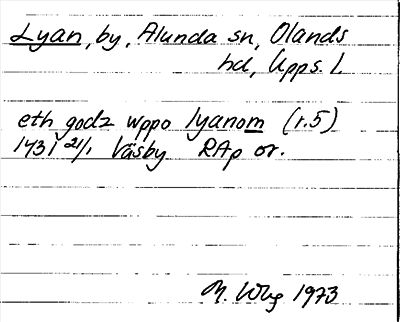 Lyan, by, Alunda sn, Olands
hd, Upps. l.
eth godz wppo lyanom (r.5)
1431 21/1 Väsby RAp or.
M. Wbg 1973